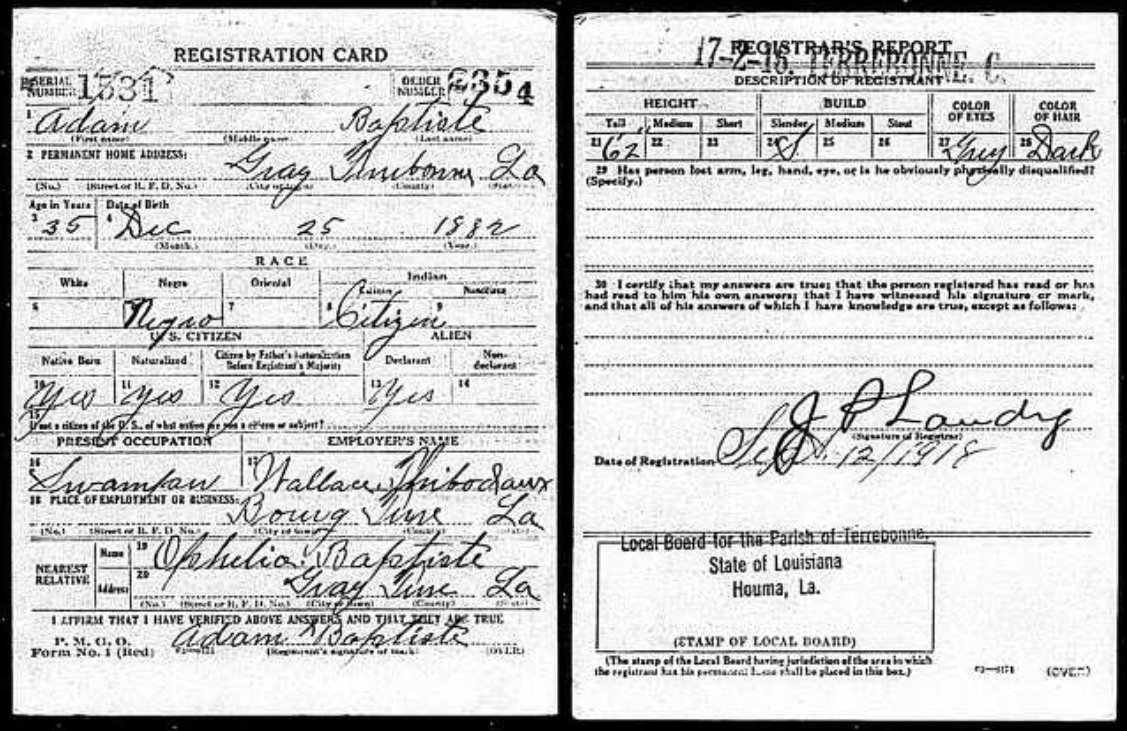 REGISTRATION CARD
SERIAL NUMBER 1531 ORDER NUMBER 2354
1 Adam Baptiste
(First name) (Middle name) (Last name)
2 PERMANENT HOME ADDRESS:
Gray Terrebonne La
(No.) (Street or R. F. D. No.) (City or town) (County) (State)
Age in Years Date of Birth
3 35 4 Dec 25 1882
(Month.) (Day.) (Year.)
RACE
White Negro Oriental Indian
Citizen Noncitizen
5 6 Negro 7 8 Citizen 9
U. S. CITIZEN ALIEN
Native Born Naturalized Citizen by Father's Naturalization Before Registrant's Majority Declarant Non-declarant
10 Yes 11 Yes 12 Yes 13 Yes 14
15 If not a citizen of the U. S., of what nation are you a citizen or subject?
PRESENT OCCUPATION EMPLOYER'S NAME
16 Swampan 17 Wallace Thibodaux
18 PLACE OF EMPLOYMENT OR BUSINESS:
Bourg La
(No.) (Street or R. F. D. No.) (City or town) (County) (State)
NEAREST RELATIVE Name 19 Ophelia Baptiste
Address 20 Gray La
(No.) (Street or R. F. D. No.) (City or town) (County) (State)
I AFFIRM THAT I HAVE VERIFIED ABOVE ANSWERS AND THAT THEY ARE TRUE
P. M. G. O.
Form No. 1 (Red) Adam Baptiste
(Registrant's signature or mark) (OVER)
REGISTRAR'S REPORT
17-2-15. TERREBONNE. C.
DESCRIPTION OF REGISTRANT
HEIGHT BUILD COLOR OF EYES COLOR OF HAIR
Tall Medium Short Slender Medium Stout
21 62 22 23 24 S 25 26 27 Grey 28 Dark
29 Has person lost arm, leg, hand, eye, or is he obviously physically disqualified?
(Specify.)
30 I certify that my answers are true; that the person registered has read or has
had read to him his own answers; that I have witnessed his signature or mark,
and that all of his answers of which I have knowledge are true, except as follows:
J P Landry
(Signature of Registrar)
Date of Registration Sept. 12/1918
Local Board for the Parish of Terrebonne,
State of Louisiana
Houma, La.
(STAMP OF LOCAL BOARD)
(The stamp of the Local Board having jurisdiction of the area in which
the registrant has his permanent home shall be placed in this box.)
(OVER)